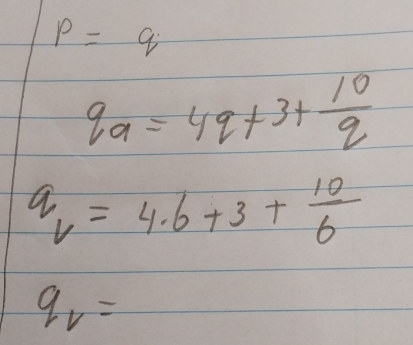 P = q
qa = 4q + 3 + 10/q
qv = 4.6 + 3 + 10/6
qv =